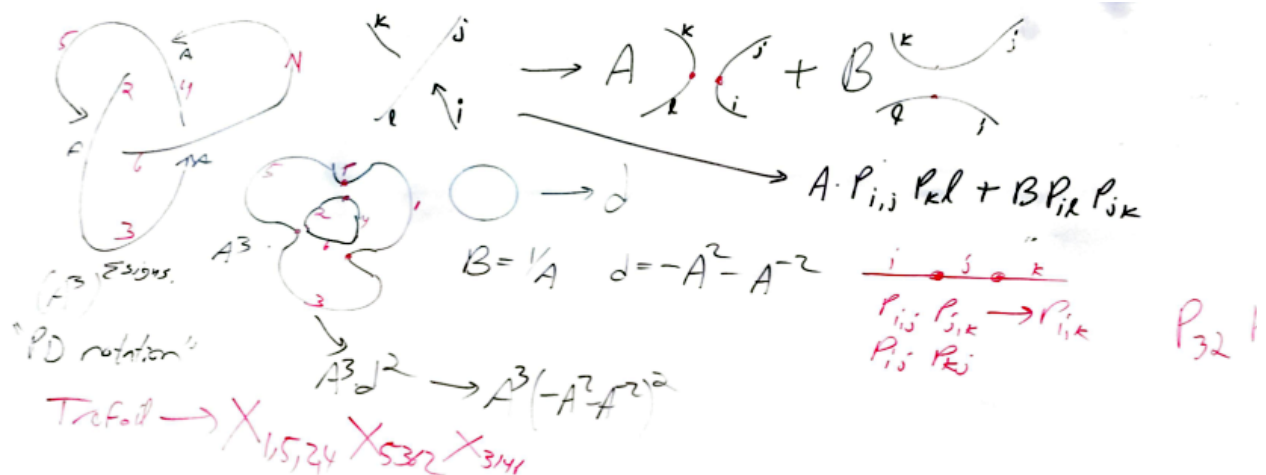 5 A N
2 4
6
3
k j
l i
→ A k l j i + B k j l i
A · P_{i,j} P_{kl} + B P_{il} P_{jk}
5 1
2 4
6
3
A^3 ·
→ d
B = 1/A d = -A^2 - A^{-2}
i j k
P_{ij} P_{j,k} → P_{i,k}
P_{ij} P_{kj}
P_{32}
Σ signs.
(A^3)
"PD notation"
A^3 d^2 → A^3(-A^2-A^{-2})^2
Trefoil → X_{1,5,2,4} X_{5362} X_{3146}